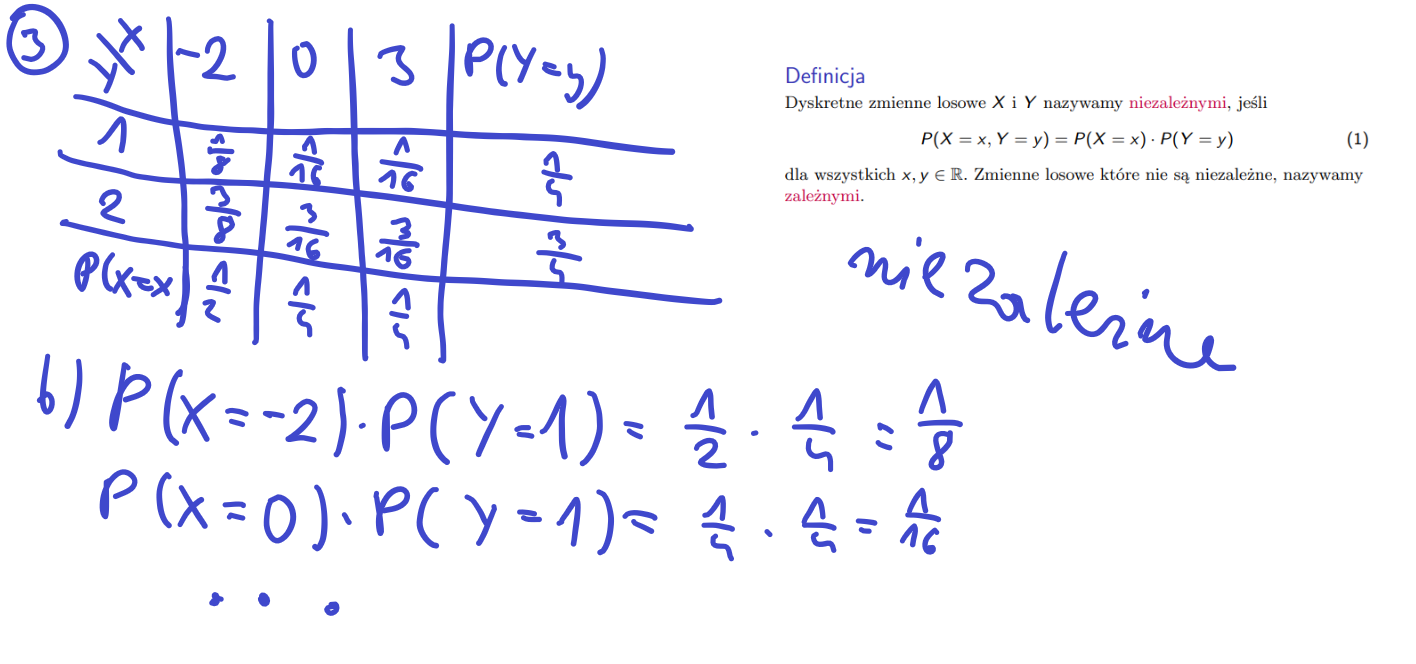 ③
Y\X | -2 | 0 | 3 | P(Y=y)
1 | 1/8 | 1/16 | 1/16 | 1/4
2 | 3/8 | 3/16 | 3/16 | 3/4
P(X=x | 1/2 | 1/4 | 1/4
Definicja
Dyskretne zmienne losowe X i Y nazywamy niezależnymi, jeśli
P(X = x, Y = y) = P(X = x) · P(Y = y) (1)
dla wszystkich x, y ∈ ℝ. Zmienne losowe które nie są niezależne, nazywamy
zależnymi.
niezależne
b) P(X=-2)·P(Y=1)= 1/2 · 1/4 = 1/8
P(X=0)·P(Y=1)= 1/4 · 1/4 = 1/16
...